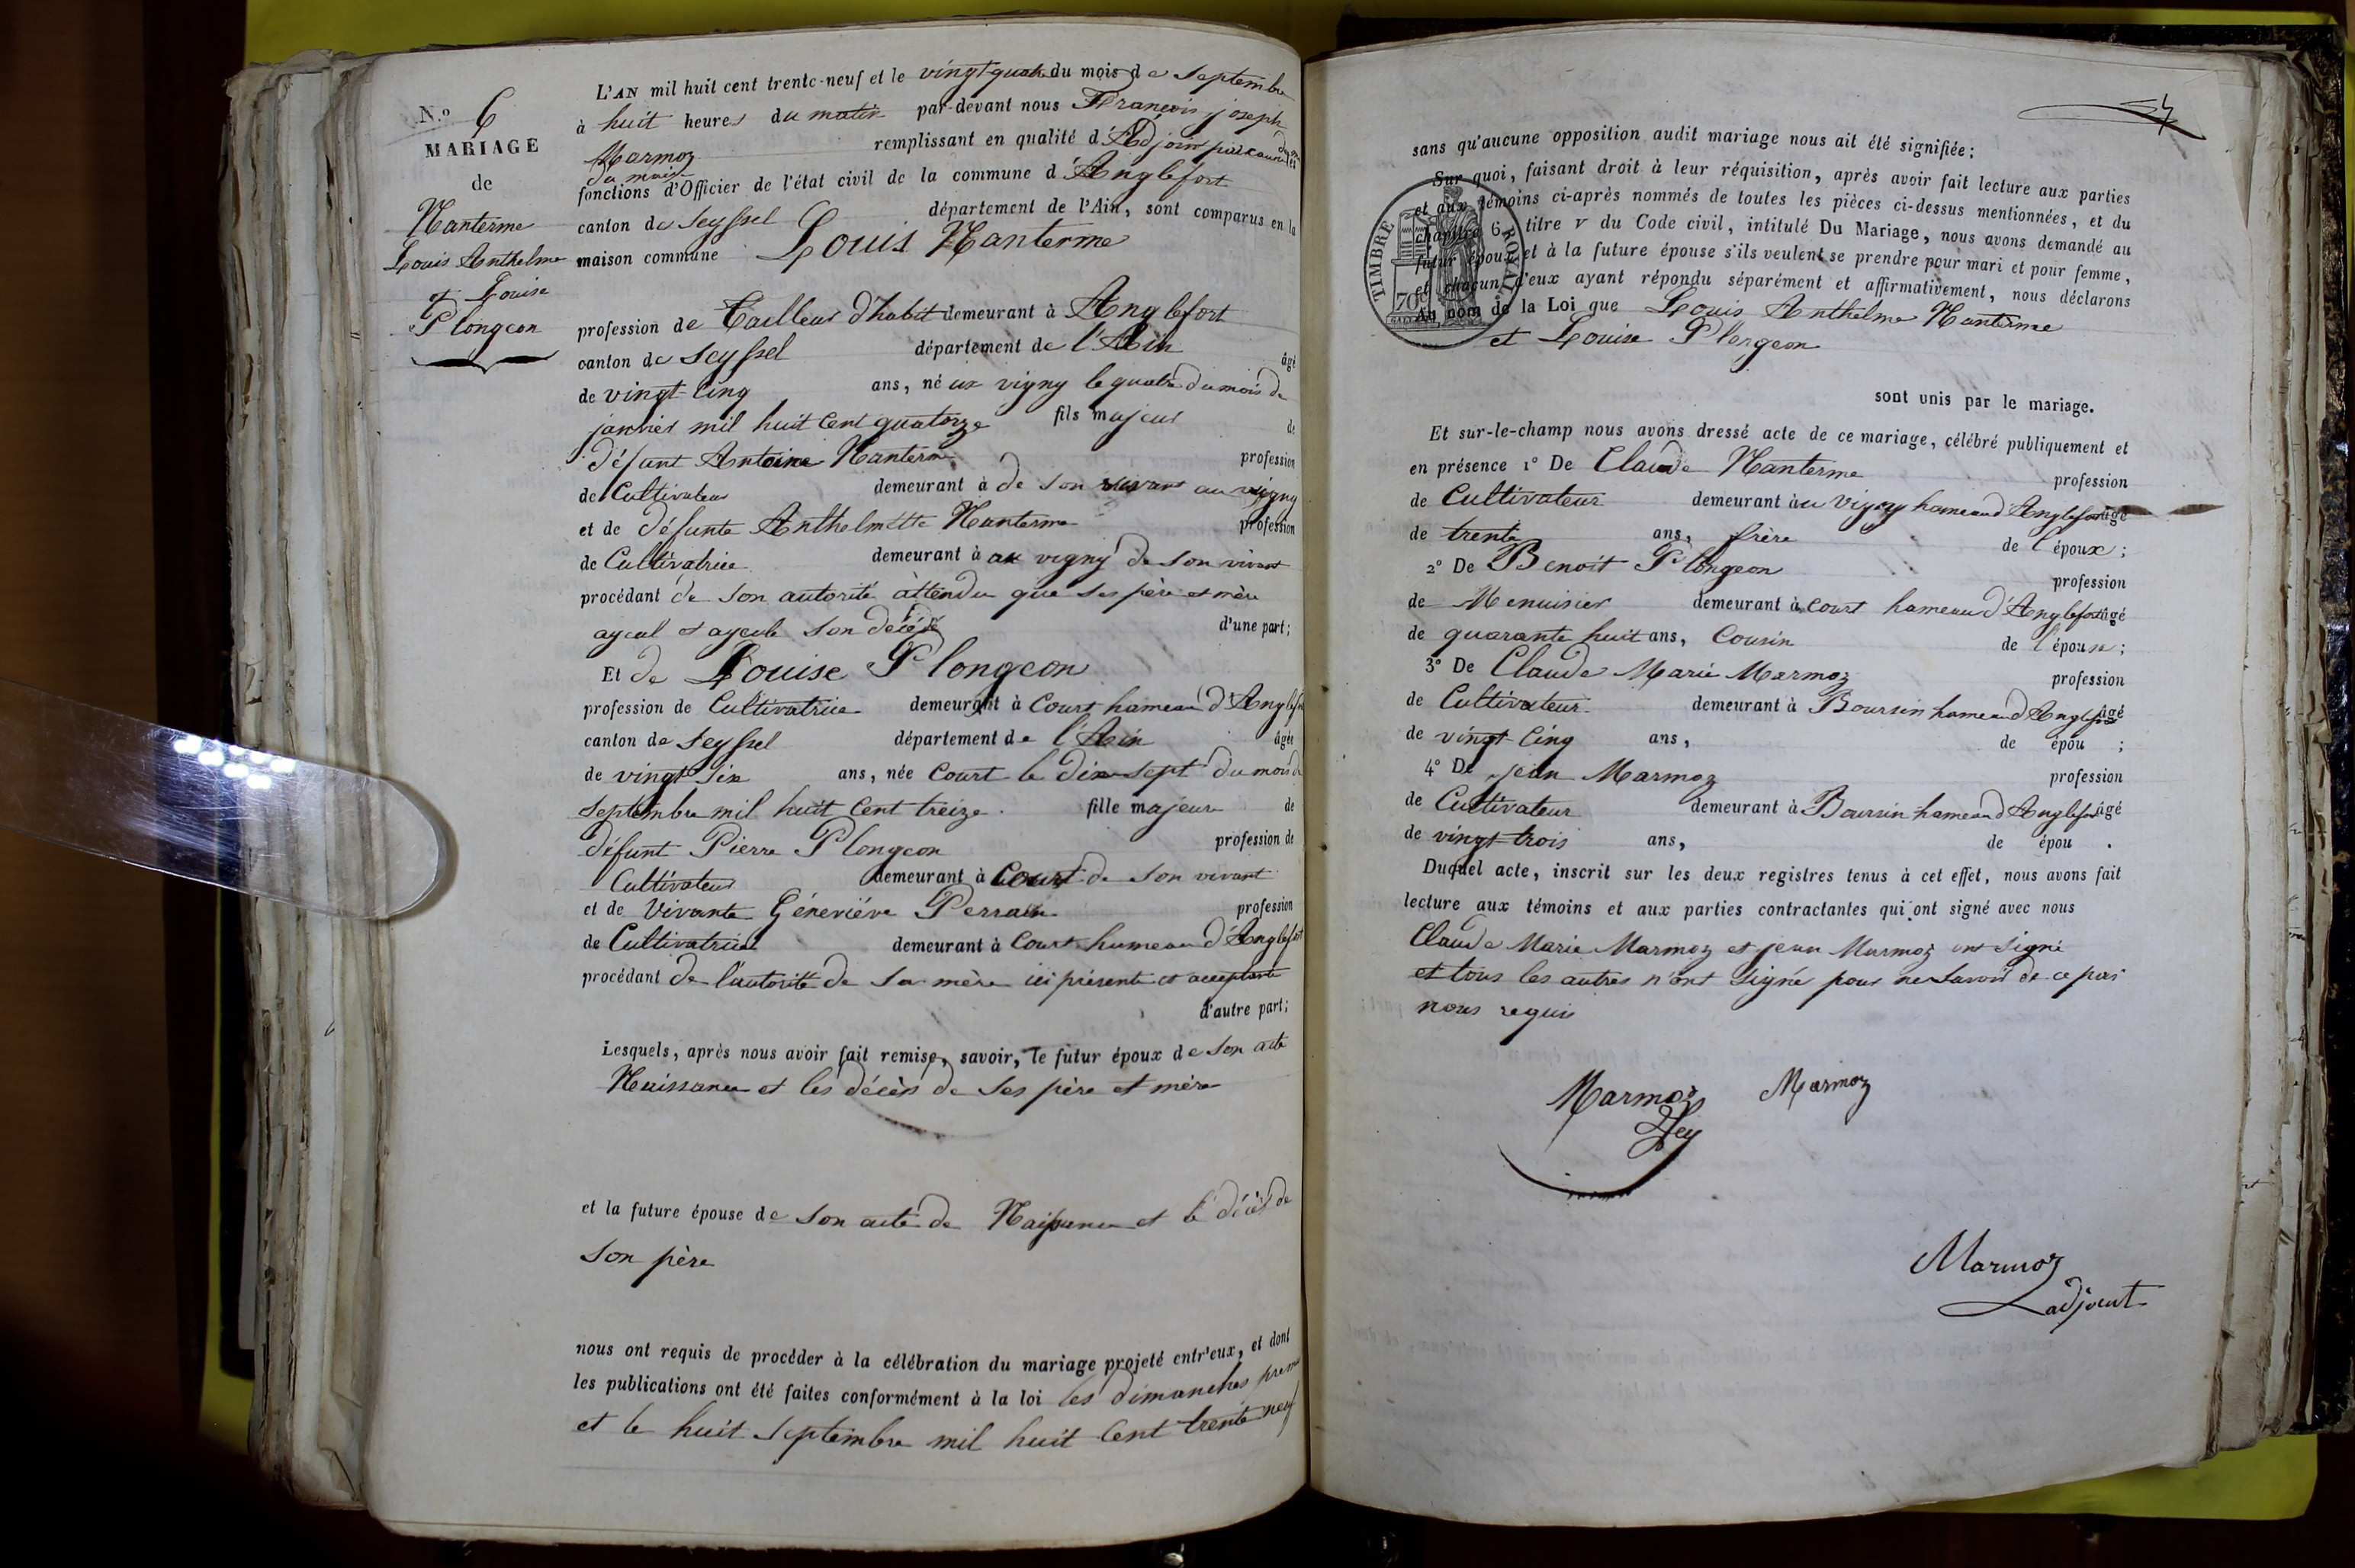 N.o 6
MARIAGE
de
Nanterme
Louis Anthelme
et Louise
Plongeon
L'AN mil huit cent trente-neuf et le vingt quatre du mois de septembre
à huit heures du matin par-devant nous François joseph
Marmoz remplissant en qualité d'Adjoint par
du maire
fonctions d'Officier de l'état civil de la commune d'Anglefort
canton de Seyssel département de l'Ain, sont comparus en la
maison commune Louis Nanterme
profession de Tailleur d'habit demeurant à Anglefort
canton de Seyssel département de l'Ain âgé
de vingt-cinq ans, né au vigny le quatre du mois de
janvier mil huit cent quatorze fils majeur de
défunt Antoine Nanterme profession
de Cultivateur demeurant à de son vivant au vigny
et de défunte Anthelmette Nanterme profession
de Cultivatrice demeurant à au vigny de son vivant
procédant de son autorité attendu que ses père et mère
ayeul et ayeule son décédé d'une part;
Et de Louise Plongeon
profession de Cultivatrice demeurant à Court hameau d'Anglefort
canton de Seyssel département de l'Ain âgée
de vingt six ans, née Court le dix-sept du mois de
septembre mil huit cent treize fille majeure de
défunt Pierre Plongeon profession de
Cultivateur demeurant à Court de son vivant
et de vivante Géneviéve Perrain profession
de Cultivatrice demeurant à Court hameau d'Anglefort
procédant de l'autorité de sa mère ici présente et acceptante
d'autre part;
Lesquels, après nous avoir fait remise, savoir, le futur époux de son acte
Naissance et les décès de ses père et mère
et la future épouse de son acte de Naissance et le décès de
son père
nous ont requis de procéder à la célébration du mariage projeté entr'eux, et dont
les publications ont été faites conformément à la loi les dimanches premier
et le huit septembre mil huit cent trente neuf
sans qu'aucune opposition audit mariage nous ait été signifiée;
Sur quoi, faisant droit à leur réquisition, après avoir fait lecture aux parties
et aux témoins ci-après nommés de toutes les pièces ci-dessus mentionnées, et du
chapitre 6, titre V du Code civil, intitulé Du Mariage, nous avons demandé au
futur époux et à la future épouse s'ils veulent se prendre pour mari et pour femme,
et chacun d'eux ayant répondu séparément et affirmativement, nous déclarons
Au nom de la Loi que Louis Anthelme Nanterme
et Louise Plongeon
TIMBRE ROYAL
70c
sont unis par le mariage.
Et sur-le-champ nous avons dressé acte de ce mariage, célébré publiquement et
en présence 1° De Claude Nanterme profession
de Cultivateur demeurant à au vigny hameau d'Anglefort âgé
de trente ans, frère de l'époux;
2° De Benoit Plongeon profession
de Menuisier demeurant à court hameau d'Anglefort âgé
de quarante huit ans, Cousin de l'épouse;
3° De Claude Marie Marmoz profession
de Cultivateur demeurant à Boursin hameau d'Anglefort âgé
de vingt-cinq ans, de épou ;
4° De jean Marmoz profession
de Cultivateur demeurant à Boursin hameau d'Anglefort âgé
de vingt-trois ans, de épou .
Duquel acte, inscrit sur les deux registres tenus à cet effet, nous avons fait
lecture aux témoins et aux parties contractantes qui ont signé avec nous
Claude Marie Marmoz et jean Marmoz ont signé
et tous les autres n'ont signé pour ne savoir de ce par
nous requis
Marmoz Marmoz
Marmoz
adjoint